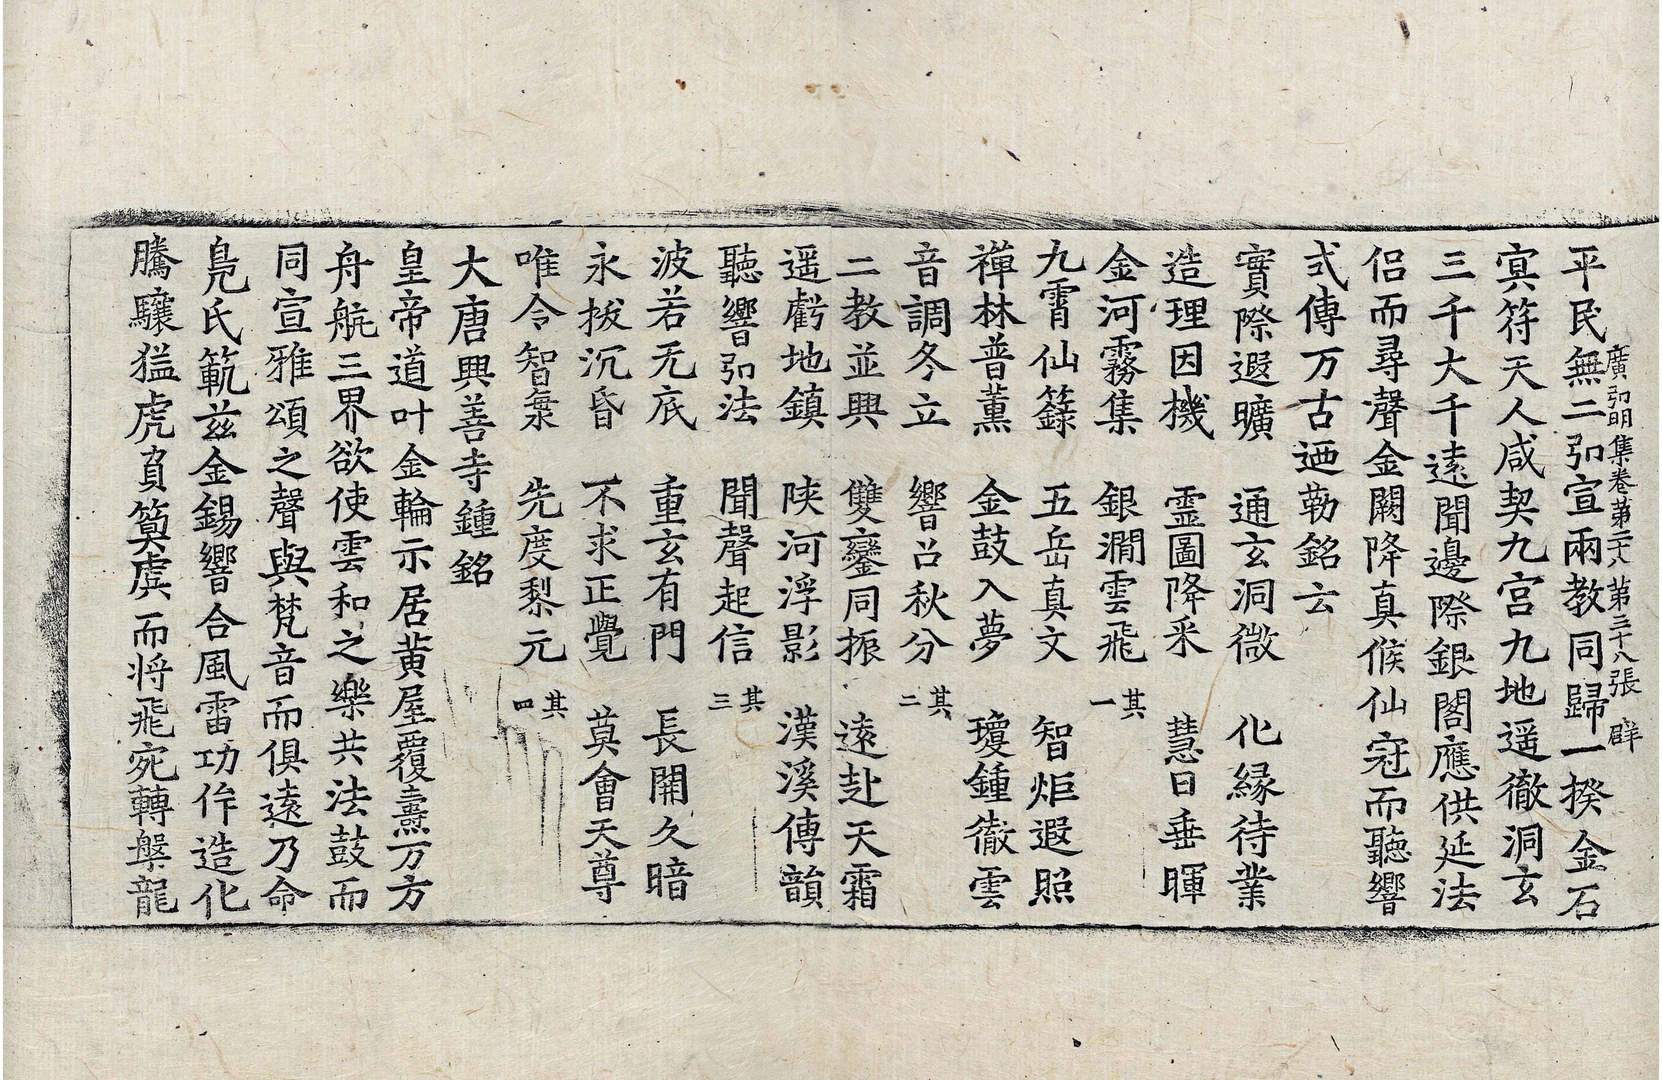 平民無二弘宣兩教同歸一揆金石
廣弘明集卷第二十八 第三十八張 群
冥符天人咸契九宮九地遥徹洞玄
三千大千遠聞邊際銀閤應供延法
侶而尋聲金闕降真候仙冠而聽響
式傳万古迺勒銘云
實際遐曠 通玄洞微 化縁待業
造理因機 霊圖降采 慧日垂暉
金河霧集 銀澗雲飛 其一
九霄仙籙 五岳真文 智炬遐照
禪林普薫 金鼓入夢 瓊鍾徹雲
音調冬立 響召秋分 其二
二教並興 雙鑾同振 遠赴天霜
遥虧地鎮 陝河浮影 漢溪傳韻
聽響弘法 聞聲起信 其三
波若无底 重玄有門 長開久暗
永拔沉昏 不求正覺 莫會天尊
唯令智衆 先度黎元 其四
大唐興善寺鍾銘
皇帝道叶金輪示居黄屋覆燾万方
舟航三界欲使雲和之樂共法鼓而
同宣雅頌之聲與梵音而俱遠乃命
鳧氏範兹金錫響合風雷功侔造化
騰驤猛虎負簨虡而将飛宛轉槃龍